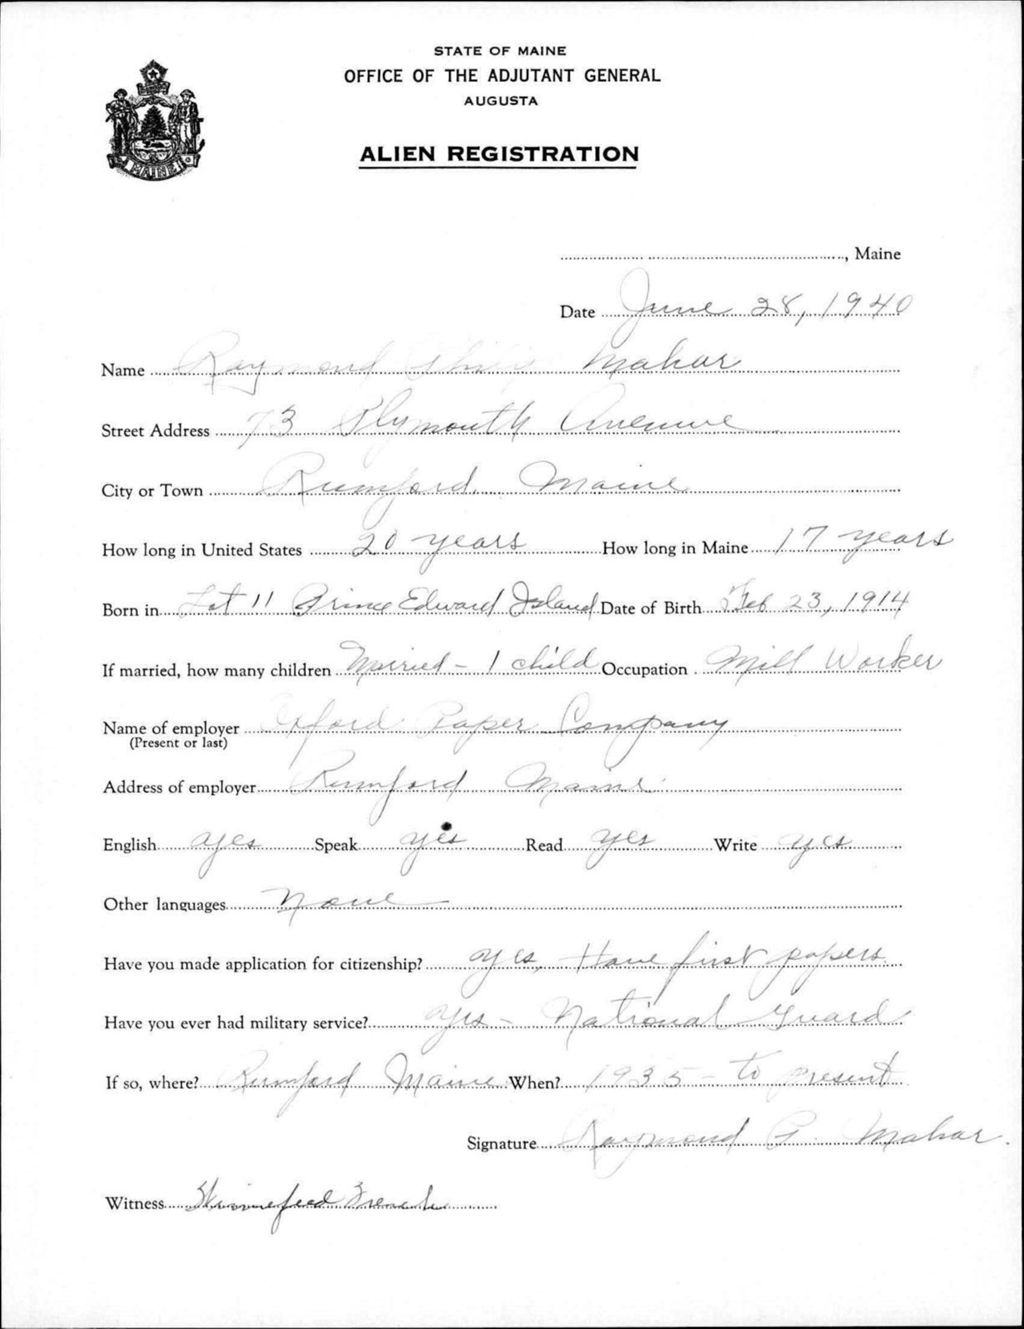 STATE OF MAINE
OFFICE OF THE ADJUTANT GENERAL
AUGUSTA
ALIEN REGISTRATION
MAINE
, Maine
Date June 28, 1940
Name Raymond Philip Mahar
Street Address 73 Plymouth Avenue
City or Town Rumford, Maine
How long in United States 20 years How long in Maine 17 years
Born in Lot 11 Prince Edward Island Date of Birth Feb 23, 1914
If married, how many children Married - 1 child Occupation Mill Worker
Name of employer Oxford Paper Company
(Present or last)
Address of employer Rumford Maine
English yes Speak yes Read yes Write yes
Other languages None
Have you made application for citizenship? yes, Have first papers.
Have you ever had military service? yes - National Guard
If so, where? Rumford Maine When? 1935 - to present
Signature Raymond P. Mahar.
Witness